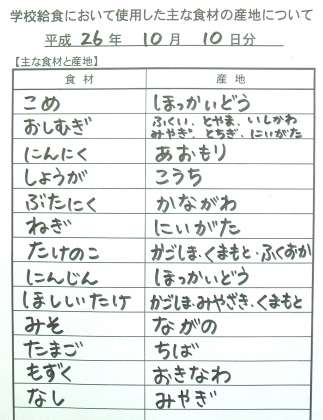 学校給食において使用した主な食材の産地について
平成 26 年 10 月 10 日分
【主な食材と産地】
食材 産地
こめ ほっかいどう
おしむぎ ふくい、とやま、いしかわ
みやぎ、とちぎ、にいがた
にんにく あおもり
しょうが こうち
ぶたにく かながわ
ねぎ にいがた
たけのこ かごしま・くまもと・ふくおか
にんじん ほっかいどう
ほししいたけ かごしま・みやざき・くまもと
みそ ながの
たまご ちば
もずく おきなわ
なし みやぎ